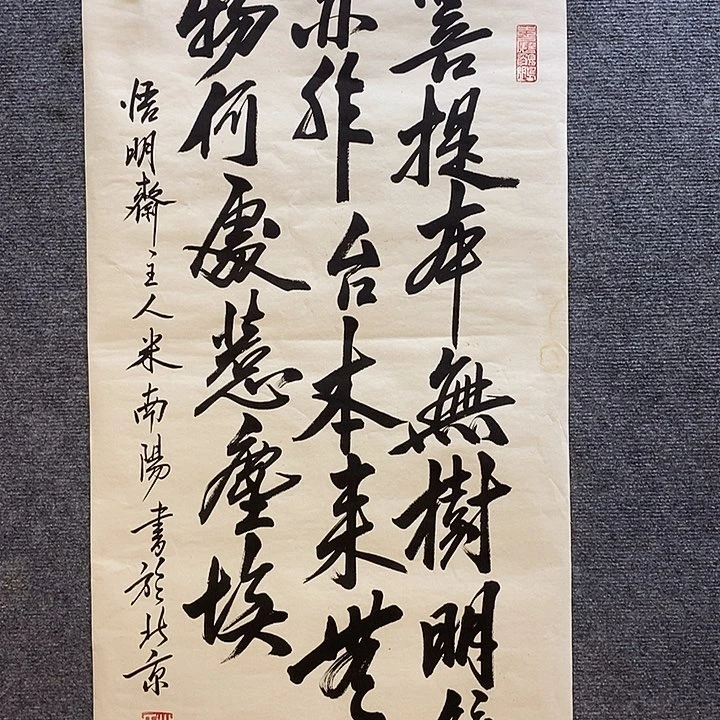 菩提本無樹明
亦非台本来無
物何處惹塵埃
悟明齋主人米南陽書於北京